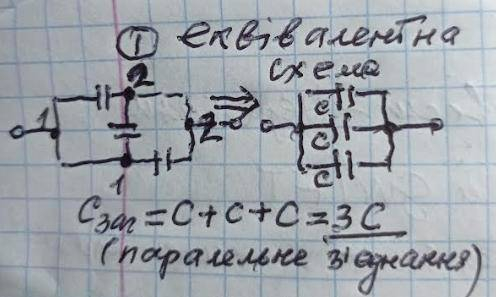 ① еквівалентна
схема
2
1
2
1
C
C
C
Cзаг = C + C + C = 3C
(паралельне з'єднання)